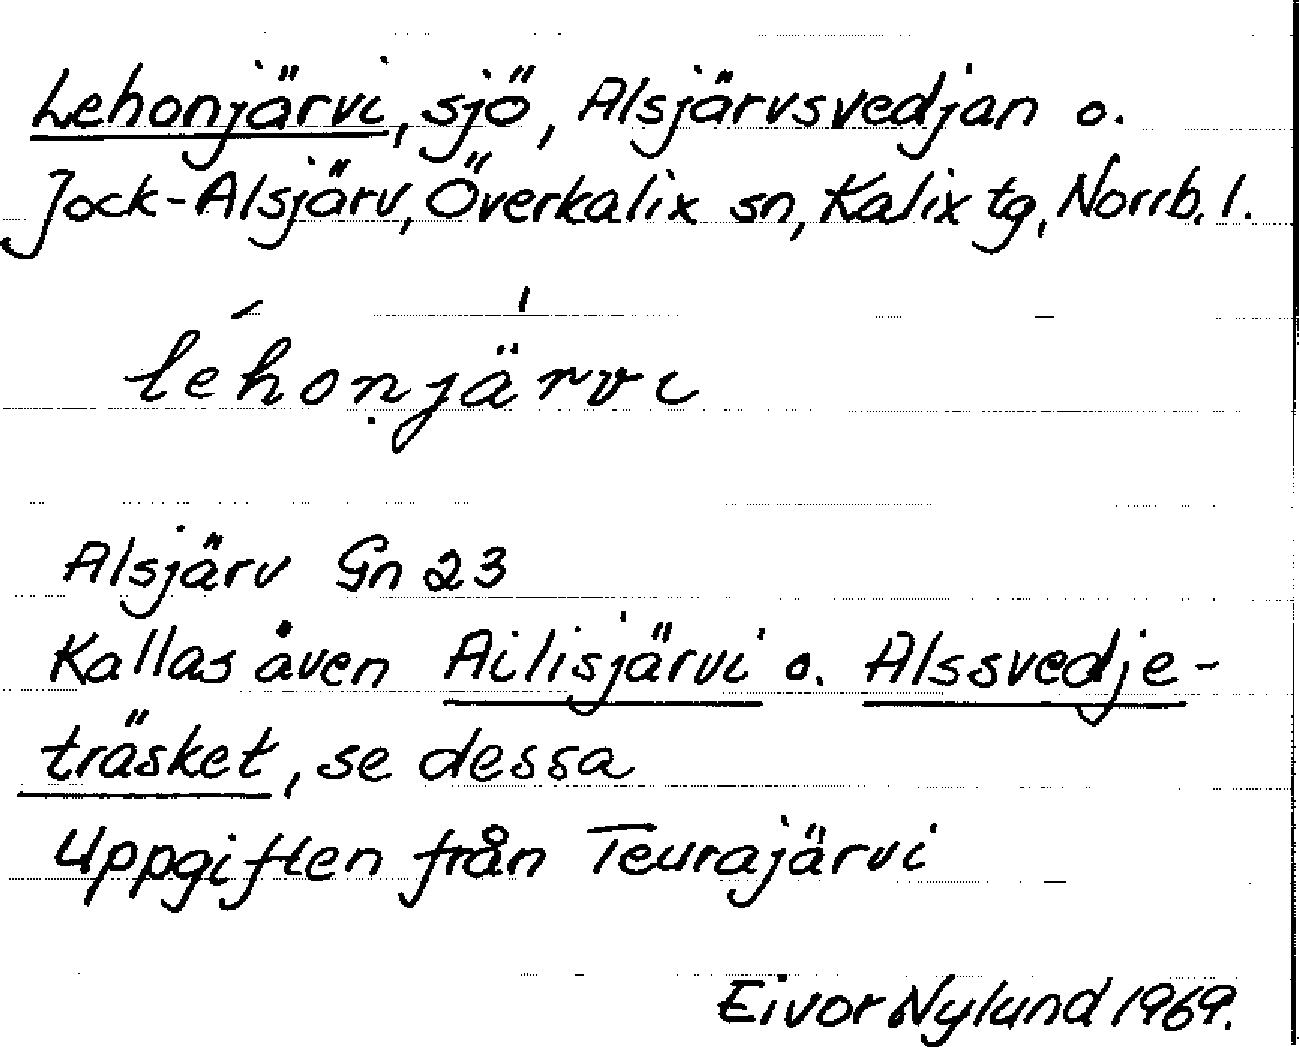 Lehonjärvi, sjö, Alsjärvsvedjan o.
Jock-Alsjärv, Överkalix sn, Kalix tg, Norrb. l.
léhoṇjä'rvi
Alsjärv Gn 23
Kallas även Ailisjärvi o. Alssvedje-
träsket, se dessa
Uppgiften från Teurajärvi
Eivor Nylund 1969.